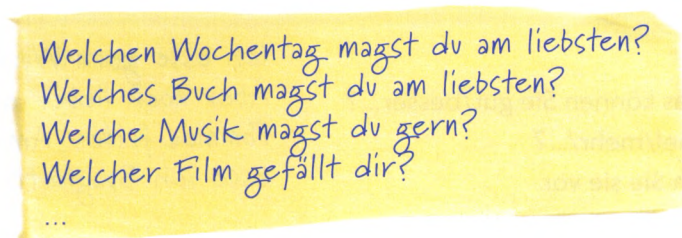 Welchen Wochentag magst du am liebsten?
Welches Buch magst du am liebsten?
Welche Musik magst du gern?
Welcher Film gefällt dir?
...